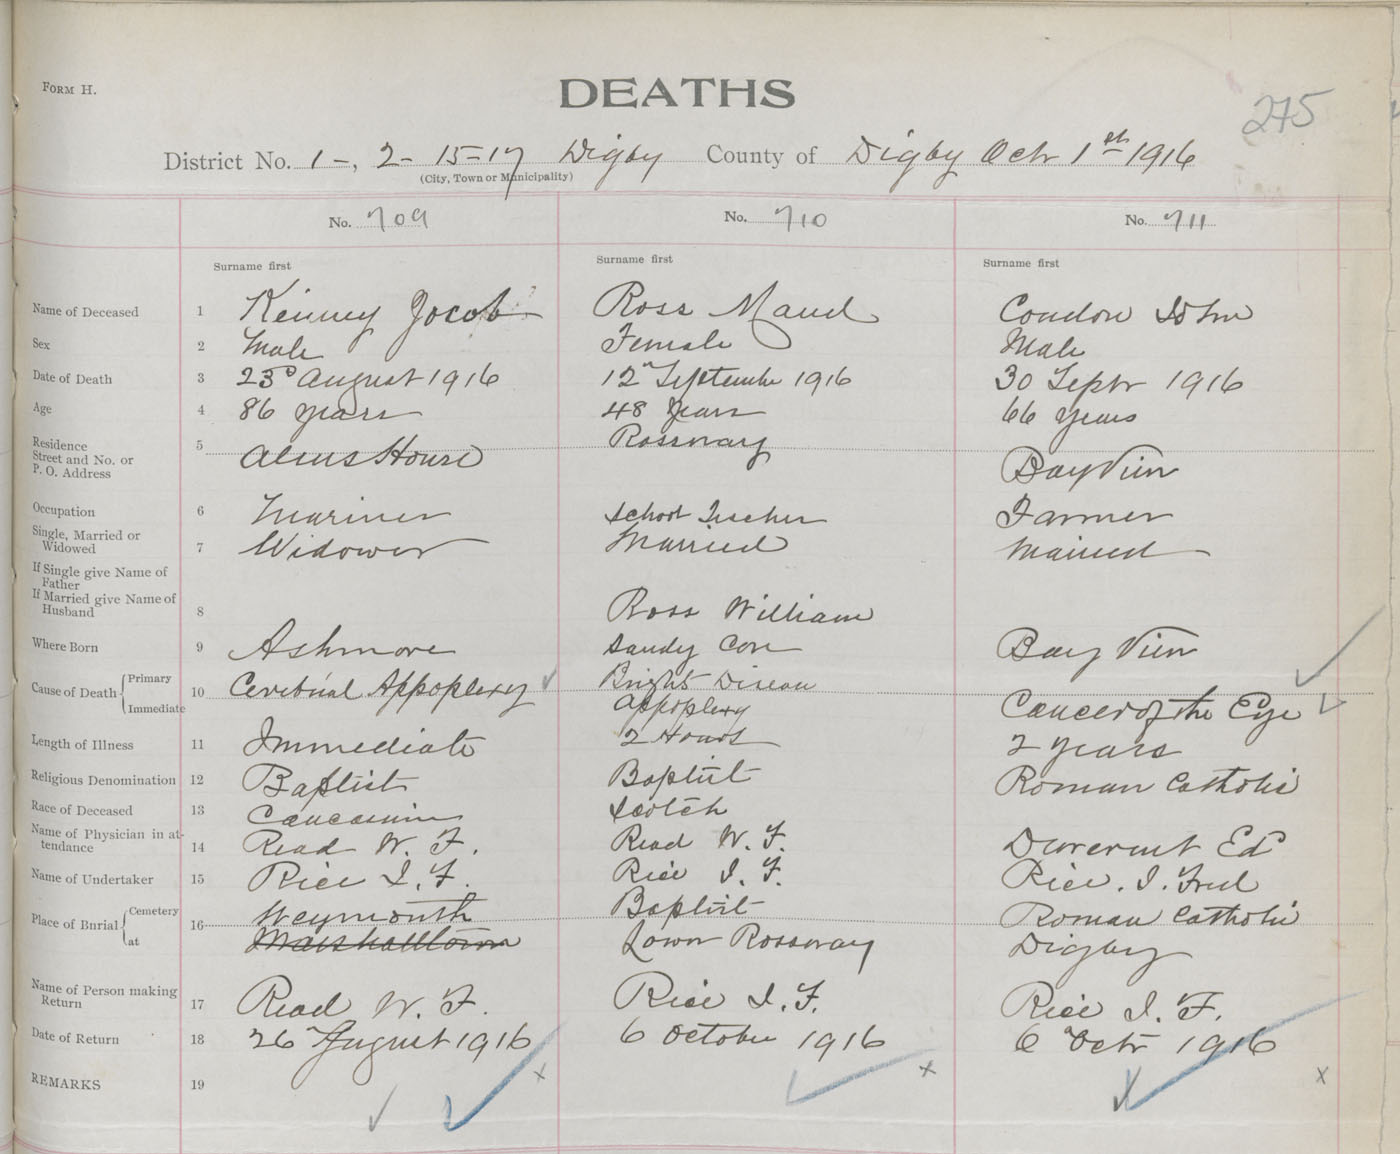 FORM H.
DEATHS
275
District No. 1-, 2- 15-17 Digby County of Digby Octr 1st 1916
(City, Town or Municipality)
No. 709 No. 710 No. 711
Surname first Surname first Surname first
Name of Deceased 1 Kinney Jacob Ross Maud Condon John
Sex 2 Male Female Male
Date of Death 3 23d August 1916 12th September 1916 30 Septr 1916
Age 4 86 years 48 Years 66 years
Residence Street and No. or P. O. Address 5 Alms House Rossway Bay View
Occupation 6 Mariner School Teacher Farmer
Single, Married or Widowed 7 Widower Married Married
If Single give Name of Father
If Married give Name of Husband 8 Ross William
Where Born 9 Ashmore Sandy Cove Bay View
Cause of Death Primary 10 Cerebral Appoplexy Brights Disease
Immediate Appoplexy Cancer of the Eye
Length of Illness 11 Immediate 2 Hours 2 years
Religious Denomination 12 Baptist Baptist Roman Catholic
Race of Deceased 13 Caucasian Scotch
Name of Physician in attendance 14 Read W. F. Read W. F. Ed
Name of Undertaker 15 Rice I. F. Rice I. F. Rice. I. Fred
Place of Burial Cemetery 16 Weymouth Baptist Roman Catholic
at Marshalltown Lower Rossway Digby
Name of Person making Return 17 Read W. F. Rice I. F. Rice I. F.
Date of Return 18 26 August 1916 6 October 1916 6 Octr 1916
REMARKS 19 x x x